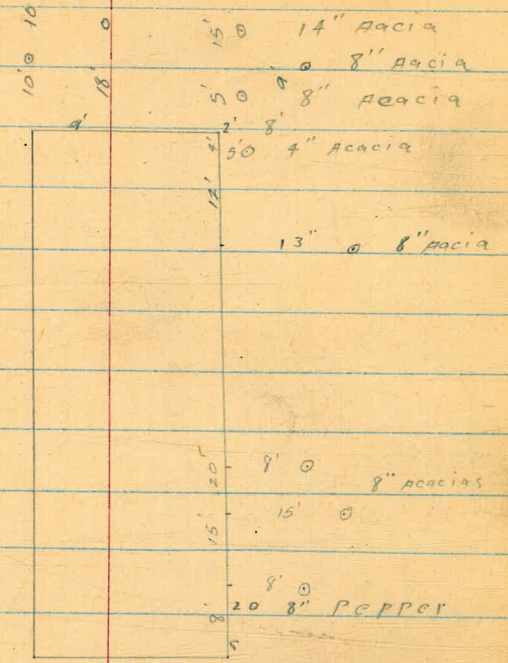 10 15' 14" Aacia
10' 18' 9' 8" Aacia
5' 8" Acacia
9' 2' 8'
4' 5' 4" Acacia
12'
13" 8" Aacia
20' 8'
8" Acacias
15' 15'
8'
8' 20 8" Pepper